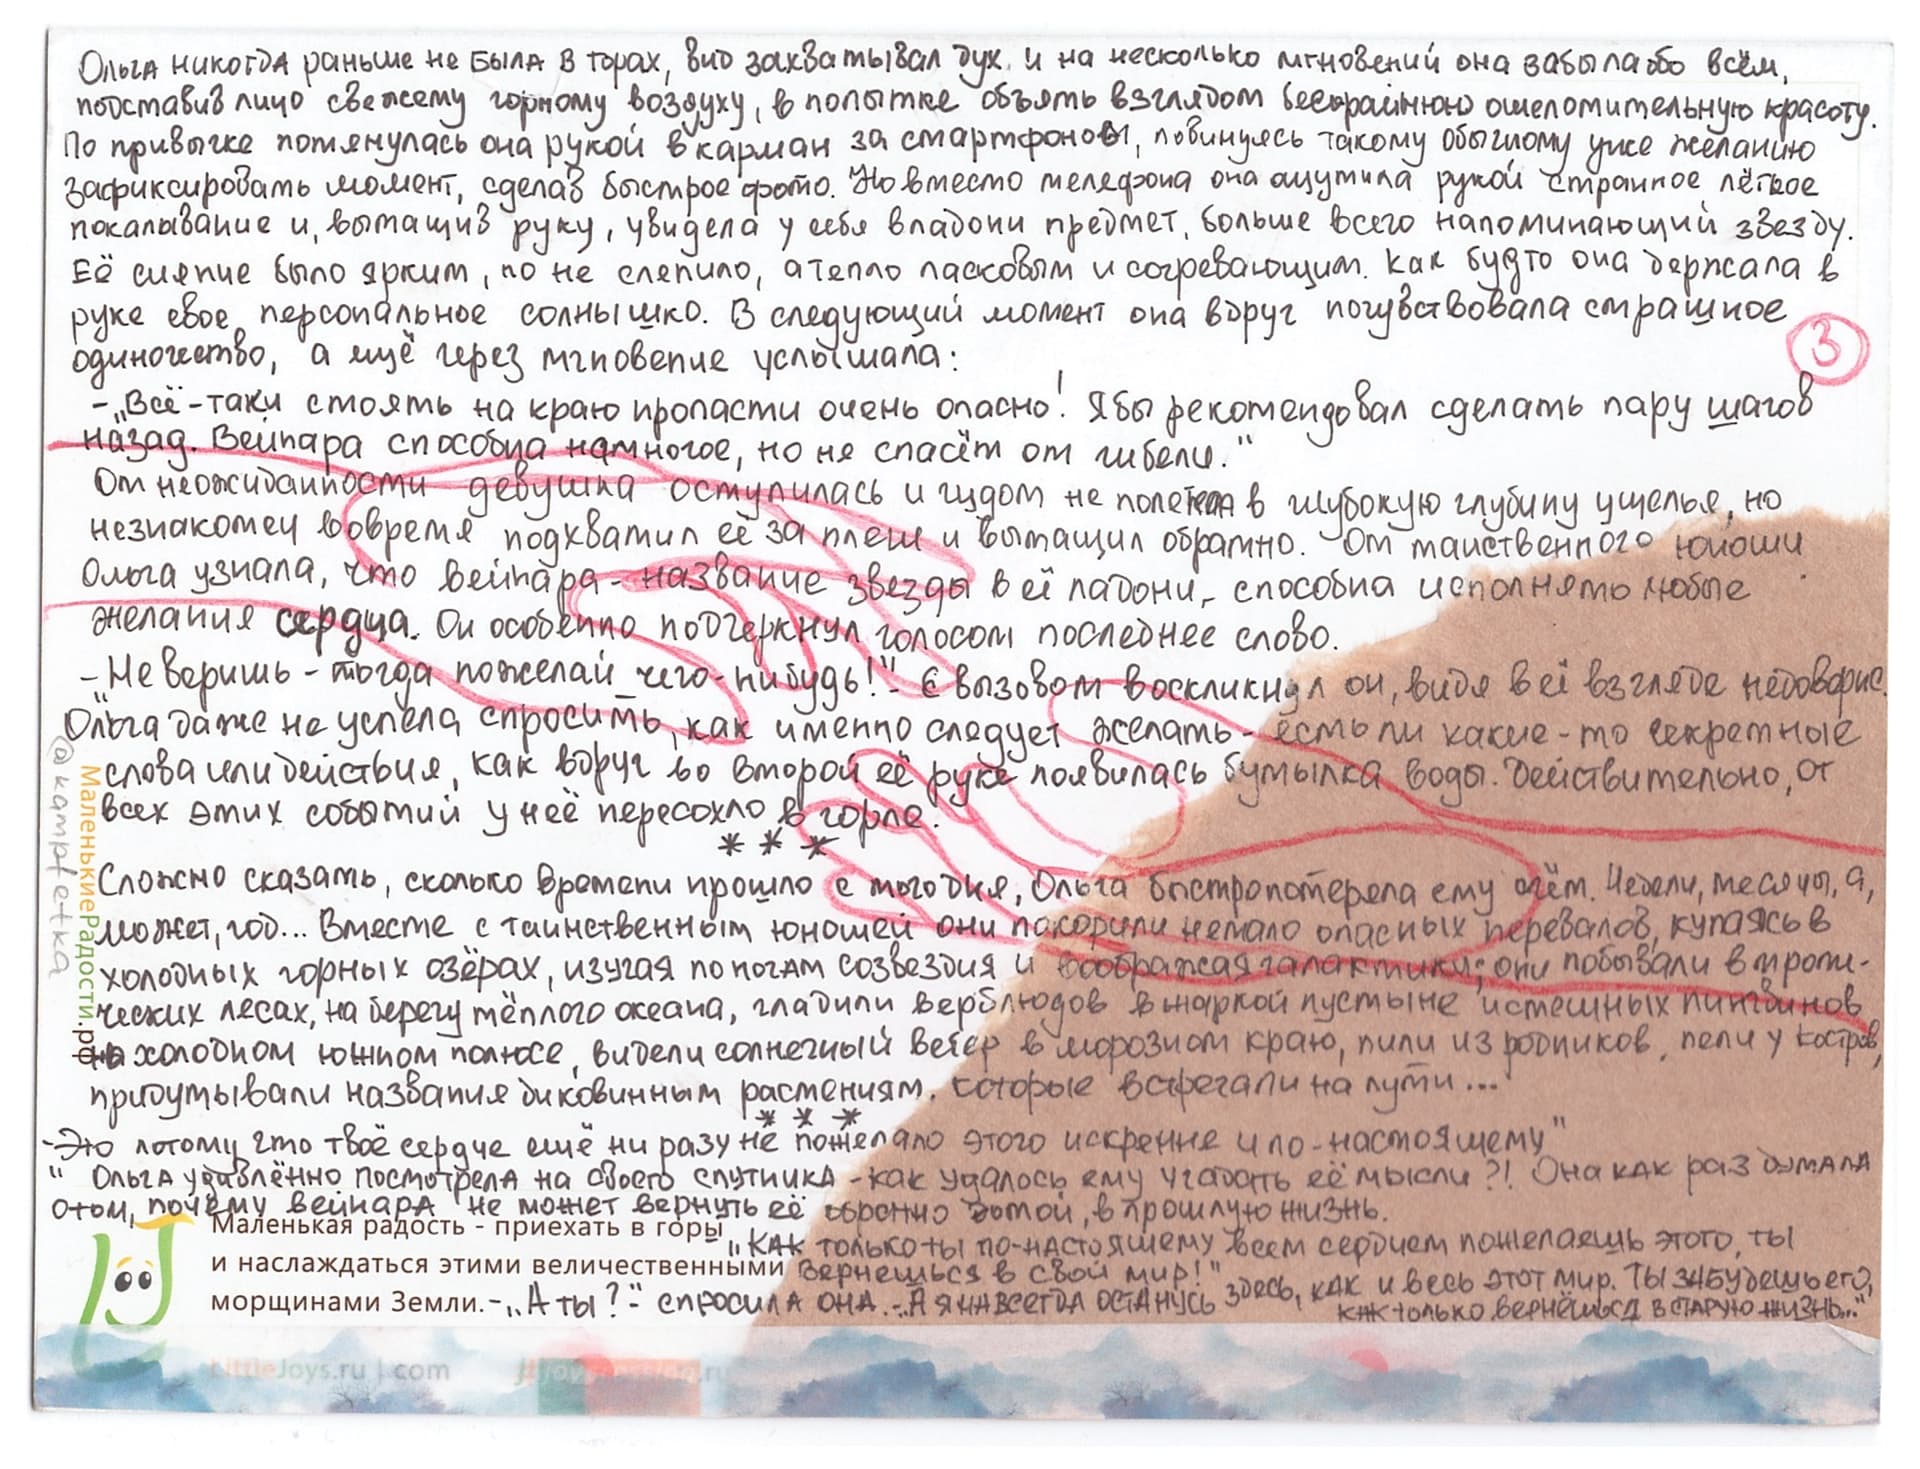 Ольга никогда раньше не была в горах, вид захватывал дух, и на несколько мгновений она забыла обо всём,
подставив лицо свежему горному воздуху, в попытке объять взглядом бескрайнюю ошеломительную красоту.
По привычке потянулась она рукой в карман за смартфоном, повинуясь такому обычному уже желанию
зафиксировать момент, сделав быстрое фото. Но вместо телефона она ощутила рукой странное лёгкое
покалывание и, вытащив руку, увидела у себя в ладони предмет, больше всего напоминающий звезду.
Её сияние было ярким, но не слепило, а тепло ласковым и согревающим. Как будто она держала в
руке свое персональное солнышко. В следующий момент она вдруг почувствовала страшное
одиночество, а ещё через мгновение услышала:
3
- „Всё-таки стоять на краю пропасти очень опасно! Я бы рекомендовал сделать пару шагов
назад. Вейнара способна на многое, но не спасёт от гибели."
От неожиданности девушка оступилась и чудом не полетела в глубокую глубину ущелья, но
незнакомец вовремя подхватил её за плечи и вытащил обратно. От таинственного юноши
Ольга узнала, что вейнара - название звезды в её ладони, - способна исполнять любые
желания сердца. Он особенно подчеркнул голосом последнее слово.
- „Не веришь - тогда пожелай чего-нибудь!" - с вызовом воскликнул он, видя в её взгляде недоверие.
Ольга даже не успела спросить, как именно следует желать - есть ли какие-то секретные
слова или действия, как вдруг во второй её руке появилась бутылка воды. Действительно, от
всех этих событий у неё пересохло в горле.
* * *
Сложно сказать, сколько времени прошло с того дня, Ольга быстро потеряла ему счёт. Недели, месяцы, а,
может, год... Вместе с таинственным юношей они покорили немало опасных перевалов, купаясь в
холодных горных озёрах, изучая по ночам созвездия и воображая галактики; они побывали в тропи-
ческих лесах, на берегу тёплого океана, гладили верблюдов в жаркой пустыне и смешных пингвинов
на холодном южном полюсе, видели солнечный ветер в морозном краю, пили из родников, пели у костров,
придумывали названия диковинным растениям, которые встречали на пути...
* * *
- „Это потому что твоё сердце ещё ни разу не пожелало этого искренне и по-настоящему"
Ольга удивлённо посмотрела на своего спутника - как удалось ему угадать её мысли?! Она как раз думала
о том, почему вейнара не может вернуть её обратно домой, в прошлую жизнь.
- „Как только ты по-настоящему всем сердцем пожелаешь этого, ты
вернешься в свой мир!"
- „А ты?" - спросила она. - „А я навсегда останусь здесь, как и весь этот мир. Ты забудешь его,
как только вернёшься в старую жизнь..."
Маленькая радость - приехать в горы
и наслаждаться этими величественными
морщинами Земли.
МаленькиеРадости.рф
@kampfetka
LittleJoys.ru | com